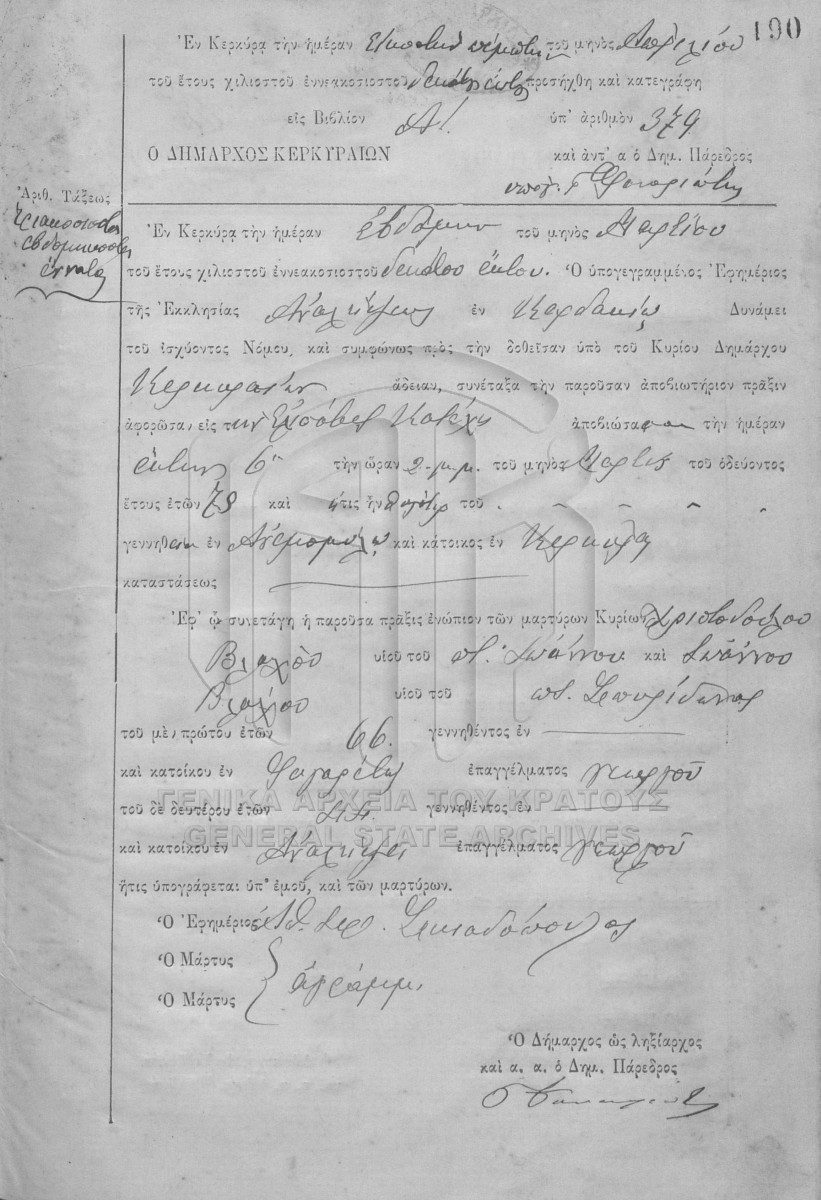 190
Ἐν Κερκύρᾳ τὴν ἡμέραν εἰκοστὴν πέμπτην τοῦ μηνὸς Ἀπριλίου
τοῦ ἔτους χιλιοστοῦ ἐννεακοσιοστοῦ δεκάτου ἕκτου προσήχθη καὶ κατεγράφη
εἰς Βιβλίον Α΄. ὑπ' ἀριθμὸν 379
Ο ΔΗΜΑΡΧΟΣ ΚΕΡΚΥΡΑΙΩΝ καὶ ἀντ' α ὁ Δημ. Πάρεδρος
Ἀριθ. Τάξεως
τριακοσιοστὸς
ἑβδομηκοστὸς
ἔννατος
Ἐν Κερκύρᾳ τὴν ἡμέραν ἑβδόμην τοῦ μηνὸς Μαρτίου
τοῦ ἔτους χιλιοστοῦ ἐννεακοσιοστοῦ δεκάτου ἕκτου. Ὁ ὑπογεγραμμένος Ἐφημέριος
τῆς Ἐκκλησίας Ἀναλήψεως ἐν Καρδακίῳ Δυνάμει
τοῦ ἰσχύοντος Νόμου, καὶ συμφώνως πρὸς τὴν δοθεῖσαν ὑπὸ τοῦ Κυρίου Δημάρχου
Κερκυραίων ἄδειαν, συνέταξα τὴν παροῦσαν ἀποβιωτήριον πρᾶξιν
ἀφορῶσαν εἰς τὴν ἀποβιώσασαν τὴν ἡμέραν
ἕκτην 6 τὴν ὥραν 2 μ.μ. τοῦ μηνὸς Μαρτίου τοῦ ὁδεύοντος
ἔτους ἐτῶν 78 καὶ ἥτις ἦν θυγάτηρ τοῦ
γεννηθεῖσα ἐν Ἀνεμομύλῳ καὶ κάτοικος ἐν Κερκύρᾳ
καταστάσεως
Ἐφ' ᾧ συνετάγη ἡ παροῦσα πρᾶξις ἐνώπιον τῶν μαρτύρων Κυρίων Χριστοδούλου
Βλαχου υἱοῦ τοῦ ποτ. Ἰωάννου καὶ Ἰωάννου
Βλάχου υἱοῦ τοῦ ποτ. Σπυρίδωνος
τοῦ μὲν πρώτου ἐτῶν 66. γεννηθέντος ἐν
καὶ κατοίκου ἐν Φιγαρέτῳ ἐπαγγέλματος γεωργοῦ
τοῦ δὲ δευτέρου ἐτῶν 44. γεννηθέντος ἐν
καὶ κατοίκου ἐν Ἀναλήψει ἐπαγγέλματος γεωργοῦ
ἥτις ὑπογράφεται ὑπ' ἐμοῦ, καὶ τῶν μαρτύρων.
Ὁ Ἐφημέριος
Ὁ Μάρτυς
ἀγράμμ.
Ὁ Μάρτυς
Ὁ Δήμαρχος ὡς ληξίαρχος
καὶ α. α. ὁ Δημ. Πάρεδρος
ΓΕΝΙΚΑ ΑΡΧΕΙΑ ΤΟΥ ΚΡΑΤΟΥΣ
GENERAL STATE ARCHIVES